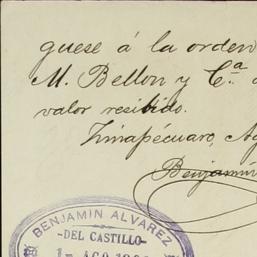 guese á la orden
M. Bellon y C.ª
valor recibido.
Zinapécuaro, Ag
Benjamín
BENJAMIN ALVAREZ
-DEL CASTILLO-
AGO